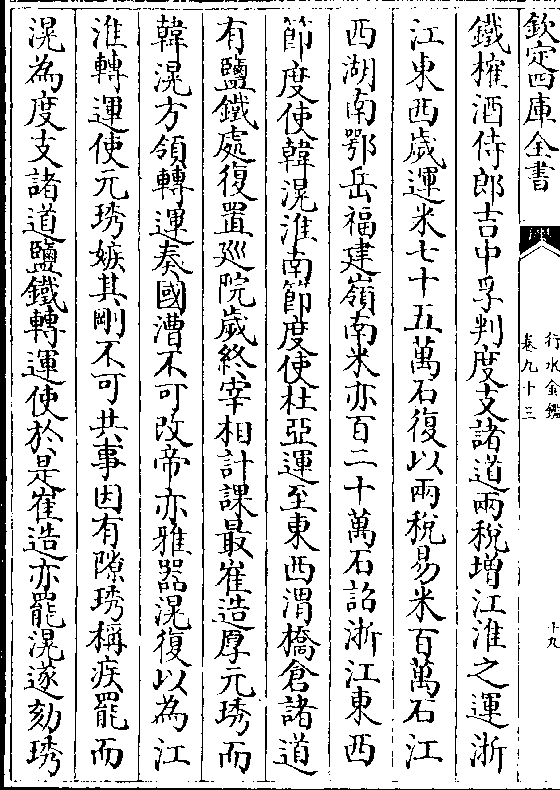 欽定四庫全書
行水金鑑
卷九十三
十九
鐵榷酒侍郎吉中孚判度支諸道兩稅增江淮之運浙
江東西歲運米七十五萬石復以兩稅易米百萬石江
西湖南鄂岳福建嶺南米亦百二十萬石詔浙江東西
節度使韓滉淮南節度使杜亞運至東西渭橋倉諸道
有鹽鐵處復置巡院歲終宰相計課最崔造厚元琇而
韓滉方領轉運奏國漕不可改帝亦雅器滉復以為江
淮轉運使元琇嫉其剛不可共事因有隙琇稱疾罷而
滉為度支諸道鹽鐵轉運使於是崔造亦罷滉遂劾琇